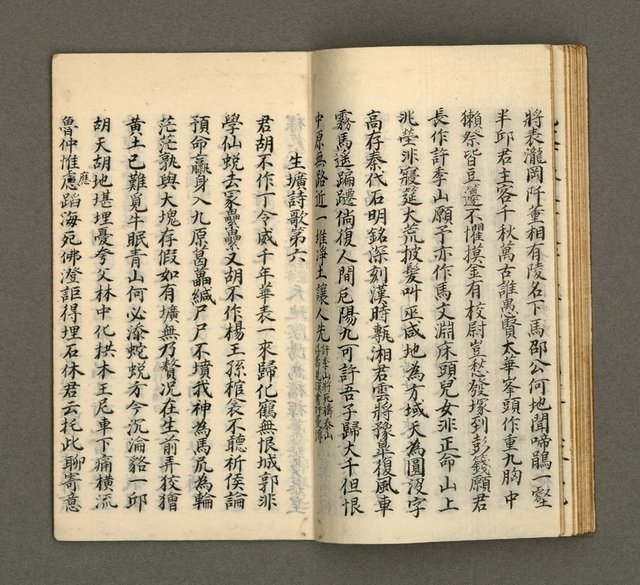 將表瀧岡阡董相有陵名下馬邵公何地聞啼鵑一壑
半邱君主客千秋萬古誰愚賢太華峯頭作重九胸中
獺祭皆豆籩不懼摸金有校尉豈愁發塚到彭籛願君
長作許季山願予亦作馬文淵床頭兒女非正命山上
兆塋非寢筵大荒披髮叫巫咸地為方域天為圓沒字
高存秦代石明銘深刻漢時甎湘君雲將豫皐復風車
霧馬遙蹁躚倘復人間厄陽九可許吾子歸大千但恨
中原無路近一堆淨土讓人先
生壙詩歌第六
君胡不作丁令威千年華表一來歸化鶴無恨城郭非
學仙蛻去冢纍纍又胡不作楊王孫棺衾不聽祈侯論
預命臝身入九原葛藟緘尸尸不墳我神為馬尻為輪
茫茫孰與大塊存假如有壙無乃贅况在生前弄狡獪
黃土已難覓牛眠青山何必添蛻蛻方今沉淪貉一邱
胡天胡地堪埋憂夸父林中化拱木王尼車下痛橫流
魯仲惟應蹈海死佛澄詎得埋石休君云托此聊寄意